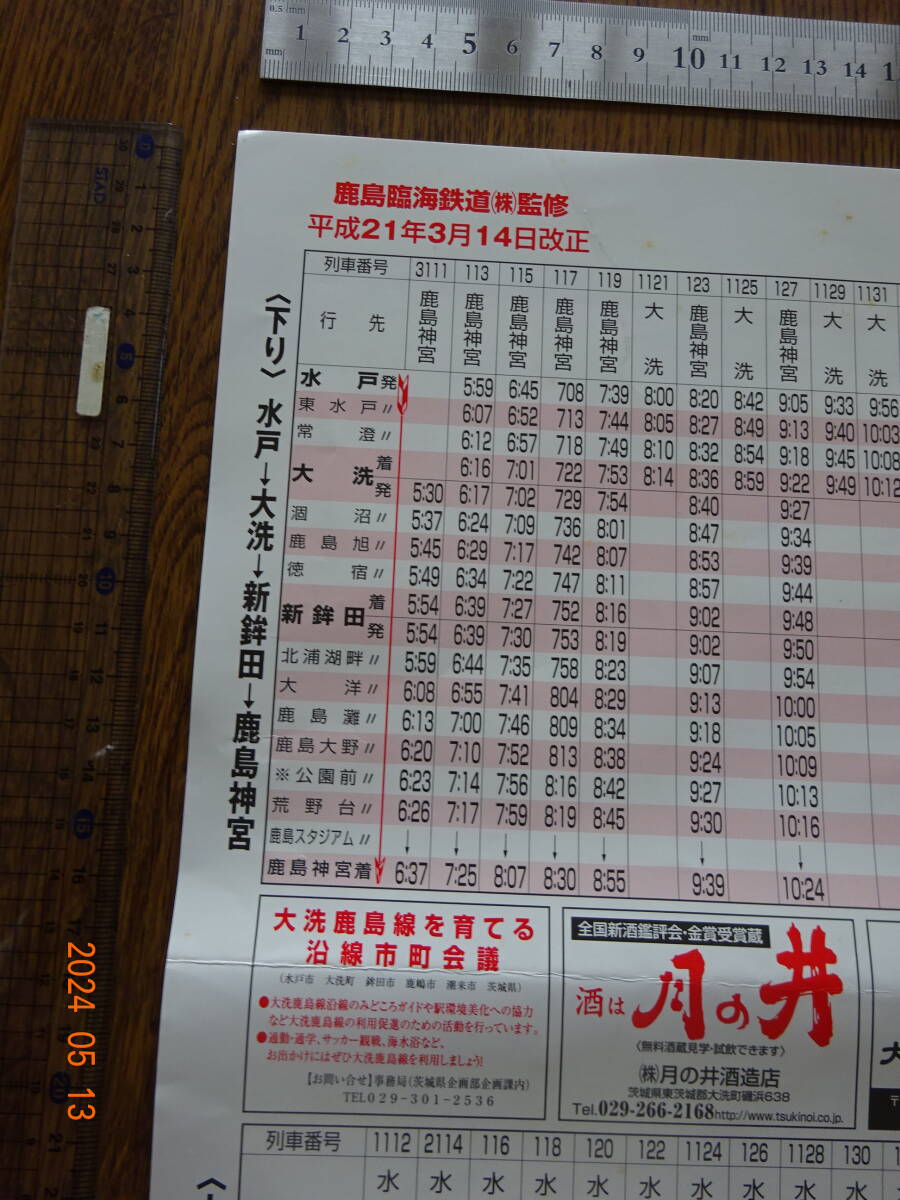 0.5 mm
mm 1 2 3 4 5 6 7 8 9 10 mm 11 12 13 14
STAD
鹿島臨海鉄道㈱監修
平成21年3月14日改正
〈下り〉 水戸→大洗→新鉾田→鹿島神宮
列車番号 3111 113 115 117 119 1121 123 1125 127 1129 1131
行先 鹿島神宮 鹿島神宮 鹿島神宮 鹿島神宮 鹿島神宮 大洗 鹿島神宮 大洗 鹿島神宮 大洗 大洗
水戸発 5:59 6:45 708 7:39 8:00 8:20 8:42 9:05 9:33 9:56
東水戸〃 6:07 6:52 713 7:44 8:05 8:27 8:49 9:13 9:40 10:03
常澄〃 6:12 6:57 718 7:49 8:10 8:32 8:54 9:18 9:45 10:08
大洗着 6:16 7:01 722 7:53 8:14 8:36 8:59 9:22 9:49 10:12
発 5:30 6:17 7:02 729 7:54 8:40 9:27
涸沼〃 5:37 6:24 7:09 736 8:01 8:47 9:34
鹿島旭〃 5:45 6:29 7:17 742 8:07 8:53 9:39
徳宿〃 5:49 6:34 7:22 747 8:11 8:57 9:44
新鉾田着 5:54 6:39 7:27 752 8:16 9:02 9:48
発 5:54 6:39 7:30 753 8:19 9:02 9:50
北浦湖畔〃 5:59 6:44 7:35 758 8:23 9:07 9:54
大洋〃 6:08 6:55 7:41 804 8:29 9:13 10:00
鹿島灘〃 6:13 7:00 7:46 809 8:34 9:18 10:05
鹿島大野〃 6:20 7:10 7:52 813 8:38 9:24 10:09
※公園前〃 6:23 7:14 7:56 8:16 8:42 9:27 10:13
荒野台〃 6:26 7:17 7:59 8:19 8:45 9:30 10:16
鹿島スタジアム〃 ↓ ↓ ↓ ↓ ↓ ↓ ↓
鹿島神宮着 6:37 7:25 8:07 8:30 8:55 9:39 10:24
大洗鹿島線を育てる
沿線市町会議
（水戸市 大洗町 鉾田市 鹿嶋市 潮来市 茨城県）
●大洗鹿島線沿線のみどころガイドや駅環境美化への協力
など大洗鹿島線の利用促進のための活動を行っています。
●通勤・通学、サッカー観戦、海水浴など、
お出かけにはぜひ大洗鹿島線を利用しましょう!
【お問い合せ】事務局（茨城県企画部企画課内）
TEL029-301-2536
全国新酒鑑評会・金賞受賞蔵
酒は月の井
〈無料酒蔵見学・試飲できます〉
㈱月の井酒造店
茨城県東茨城郡大洗町磯浜638
Tel.029-266-2168 http://www.tsukinoi.co.jp.
列車番号 1112 2114 116 118 120 122 1124 126 1128 130
水 水 水 水 水 水 水 水 水 水
2024 05 13